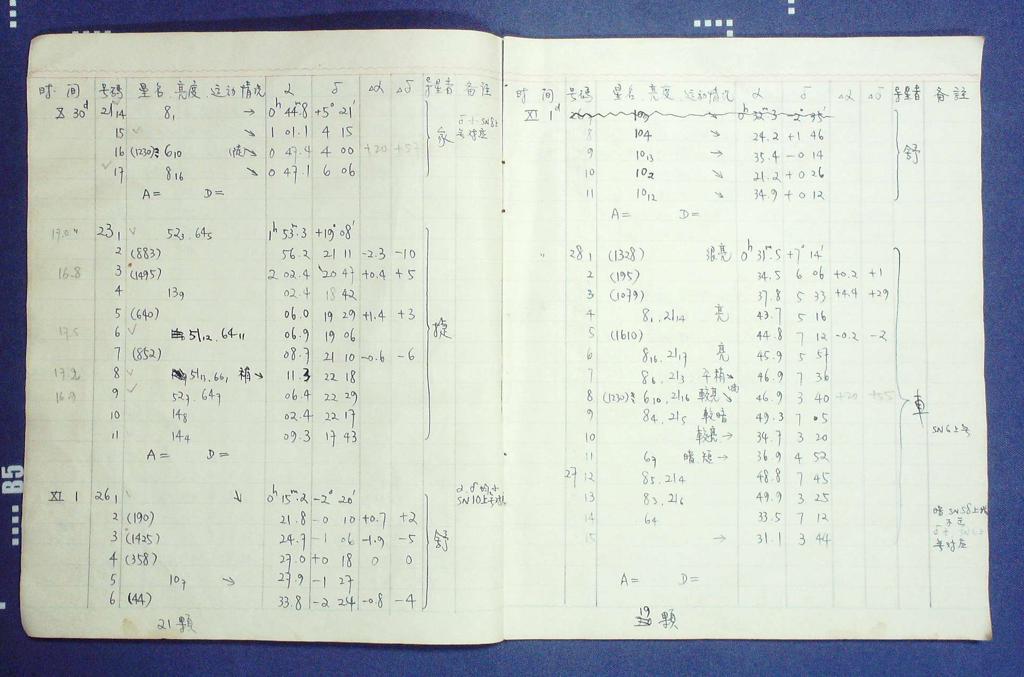 时 间 号码 星名 亮度 运动情况 α δ Δα Δδ 寻星者 备註
X 30ᵈ 21 14 8₁ → 0ʰ 44ᵐ.8 +5° 21′
15 ✓ ↘ 1 01.1 4 15
16 (1230) 6₁₀ ↘ 0 47.4 4 00 +20
✓ 17 8₁₆ ↘ 0 47.1 6 06
A= D=
23₁ ✓ 52₃, 64₅ 1ʰ 53ᵐ.3 +19° 08′
2 (883) 56.2 21 11 -2.3 -10
16.8 3 (1495) 2 02.4 20 47 +0.4 +5
4 13₉ 02.4 18 42
5 (640) 06.0 19 29 +1.4 +3
17.5 6 ✓ 51₁₂, 64₁₁ 06.9 19 06
7 (852) 08.7 21 10 -0.6 -6
17.2 8 ✓ 51₁₁, 66₁ 稍↘ 11.3 22 18
16.9 9 ✓ 52₇, 64₇ 06.4 22 29
10 14₈ 02.4 22 17
11 14₄ 09.3 17 43
A= D=
XI 1 26₁ ↘ 0ʰ 15ᵐ.2 -2° 20′
2 (190) 21.8 -0 10 +0.7 +2
3 (1425) 24.7 -1 06 -1.9 -5
4 (358) 27.0 +0 18 0 0
舒
5 10₇ → 27.9 -1 27
6 (44) 33.8 -2 24 -0.8 -4
21 顆
时 间 号码 星名 亮度 运动情况 α δ Δα Δδ 寻星者 备註
XI 1ᵈ 10₉ → 0ʰ 32ᵐ.3
8 10₄ 24.2 +1 46
9 10₁₃ → 35.4 -0 14
舒
10 10₂ ↘ 21.2 +0 26
11 10₁₂ → 34.9 +0 12
A= D=
28₁ (1328) 很亮 0ʰ 31ᵐ.5 +7° 14′
2 (195) 34.5 6 06 +0.2 +1
3 (1079) 37.8 5 33 +4.4 +29
4 8₁, 21₁₄ 亮 43.7 5 16
5 (1610) 44.8 7 12 -0.2 -2
6 8₁₆, 21₁₇ 亮 45.9 5 57
7 8₆, 21₃ 46.9 7 36
8 (1230) 6₁₀, 21₁₆ 較亮 46.9 3 40 +20 +55
車
9 8₄, 21₅ 較暗 49.3 7 05
10 較亮 → 34.7 3 20
11 6₇ 暗 短 → 36.9 4 52
27 12 8₅, 21₄ 48.8 7 45
13 8₃, 21₆ 49.9 3 25
14 6₄ 33.5 7 12
15 → 31.1 3 44
A= D=
19
顆
B5